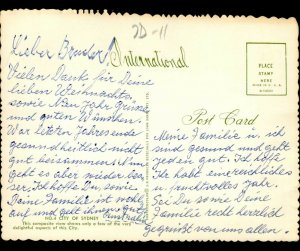 2D-11
Lieber Bruder!
International
Vielen Dank für Deine
lieben Weihnachts,
sowie Neu Jahr Grüsse
und guten Wünschen.
War letzten Jahresende
gesundheitlich nicht
gut beisammen. Im
geht es aber wieder bes-
ser. Ich hoffe Du, sowie
Deine Familie ist wohl-
auf und geht ihnen gut.
PLACE
STAMP
HERE
Post Card
Meine Familie u. ich
sind gesund und geht
jedem gut. Ich hoffe
Ihr habt ein erreichliches
u. fruchtvolles Jahr.
Sei Du sowie Deine
Familie recht herzlich
gegrüßt von uns allen.
CITY OF
This composite view shows only a few of the
delightful aspects of this City.